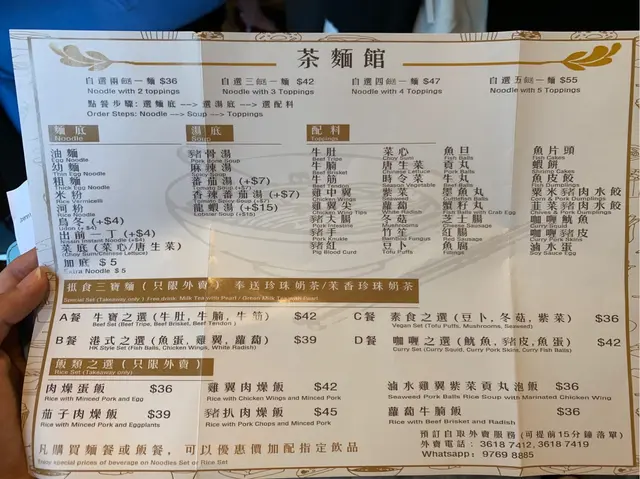 茶麵館
自選兩餸一麵 $36 自選三餸一麵 $42 自選四餸一麵 $47 自選五餸一麵 $55
Noodle with 2 toppings Noodle with 3 Toppings Noodle with 4 Toppings Noodle with 5 toppings
點餐步驟: 選麵底 ---> 選湯底 ---> 選配料
Order Steps: Noodle ---> Soup ---> Toppings
麵底
Noodle
油麵
Egg Noodle
幼麵
粗麵
Thick Egg Noodle
米粉
Rice Vermicelli
河粉
Rice Noodle
烏冬 (+$4)
Udon (+$4)
出前一丁 (+$4)
Nissin Instant Noodle (+$4)
菜底 (菜心/唐生菜)
Choy Sum/Chinese Lettuce)
加底 $5
Extra Noodle $5
湯底
Soup
豬骨湯
Pork Bone Soup
麻辣湯
番茄湯 (+$7)
香辣番茄湯 (+$7)
龍蝦湯 (+$15)
Lobster Soup (+$15)
配料
Toppings
牛肚
Beef Tripe
牛腩
Beef Brisket
牛筋
Beef Tendon
雞中翼
Chicken Wings
雞翼尖
Chicken Wing Tips
豬大腸
Pork Intestine
豬手
Pork Knuckle
豬紅
Pig Blood Curd
菜心
Choy Sum
唐生菜
Chinese Lettuce
時令菜
Season Vegetable
紫菜
Seaweed
蘿蔔
White Radish
冬菇
Mushrooms
竹笙
Bamboo Fungus
豆卜
Tofu Puffs
魚旦
Fish Balls
貢丸
Pork Balls
牛丸
Beef Balls
墨魚丸
蟹籽丸
Fish Balls with Crab Egg
芝士腸
Cheese Sausage
紅腸
Red Sausage
魚腐
魚片頭
Fish Cakes
蝦餅
Shrimp Cakes
魚皮餃
Fish Dumplings
粟米豬肉水餃
Corn & Pork Dumplings
韮菜豬肉水餃
Chives & Pork Dumplings
咖喱魷魚
Curry Squid
咖喱豬皮
Curry Pork Skins
滷水蛋
Soy Sauce Egg
抵食三寶麵 (只限外賣) 奉送珍珠奶茶/茉香珍珠奶茶
A餐 牛寶之選 (牛肚,牛腩,牛筋) $42
Beef Set (Beef Tripe, Beef Brisket, Beef Tendon )
B餐 港式之選 (魚蛋,雞翼,蘿蔔) $39
HK Style Set (Fish Balls, Chicken Wings, White Radish)
C餐 素食之選 (豆卜,冬菇,紫菜) $36
Vegan Set (Tofu Puffs, Mushrooms, Seaweed)
D餐 咖喱之選 (魷魚,豬皮,魚蛋) $42
Curry Set (Curry Squid, Curry Pork Skins, Curry Fish Balls)
飯類之選 (只限外賣)
Rice Set (Takeaway only)
肉燥蛋飯 $36
Rice with Minced Pork and Egg
茄子肉燥飯 $39
Rice with Minced Pork and Eggplants
雞翼肉燥飯 $42
Rice with Chicken Wings and Minced Pork
豬扒肉燥飯 $45
Rice with Pork Chops and Minced Pork
滷水雞翼紫菜貢丸泡飯 $36
Seaweed Pork Balls Rice Soup with Marinated Chicken Wing
蘿蔔牛腩飯 $36
Rice with Beef Brisket and Radish
凡購買麵餐或飯餐, 可以優惠價加配指定飲品
Enjoy special prices of beverage on Noodles Set or Rice Set
預訂自取外賣服務 (可提前15分鐘落單)
外賣電話 : 3618 7412, 3618 7419
Whatsapp : 9769 8885